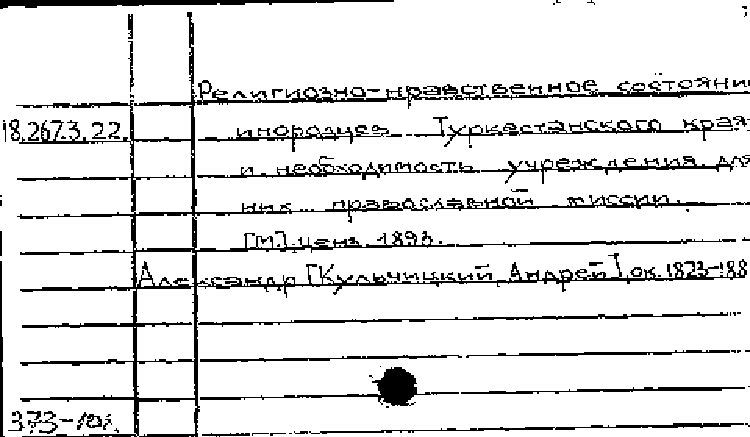 Религиозно-нравственное состояни
18.267.3.22. инородцев Туркестанского края
и необходимость учреждения для
них православной миссии.
[М.] ценз. 1893.
Александр [Кульчицкий Андрей], ок. 1823-188
373-101.